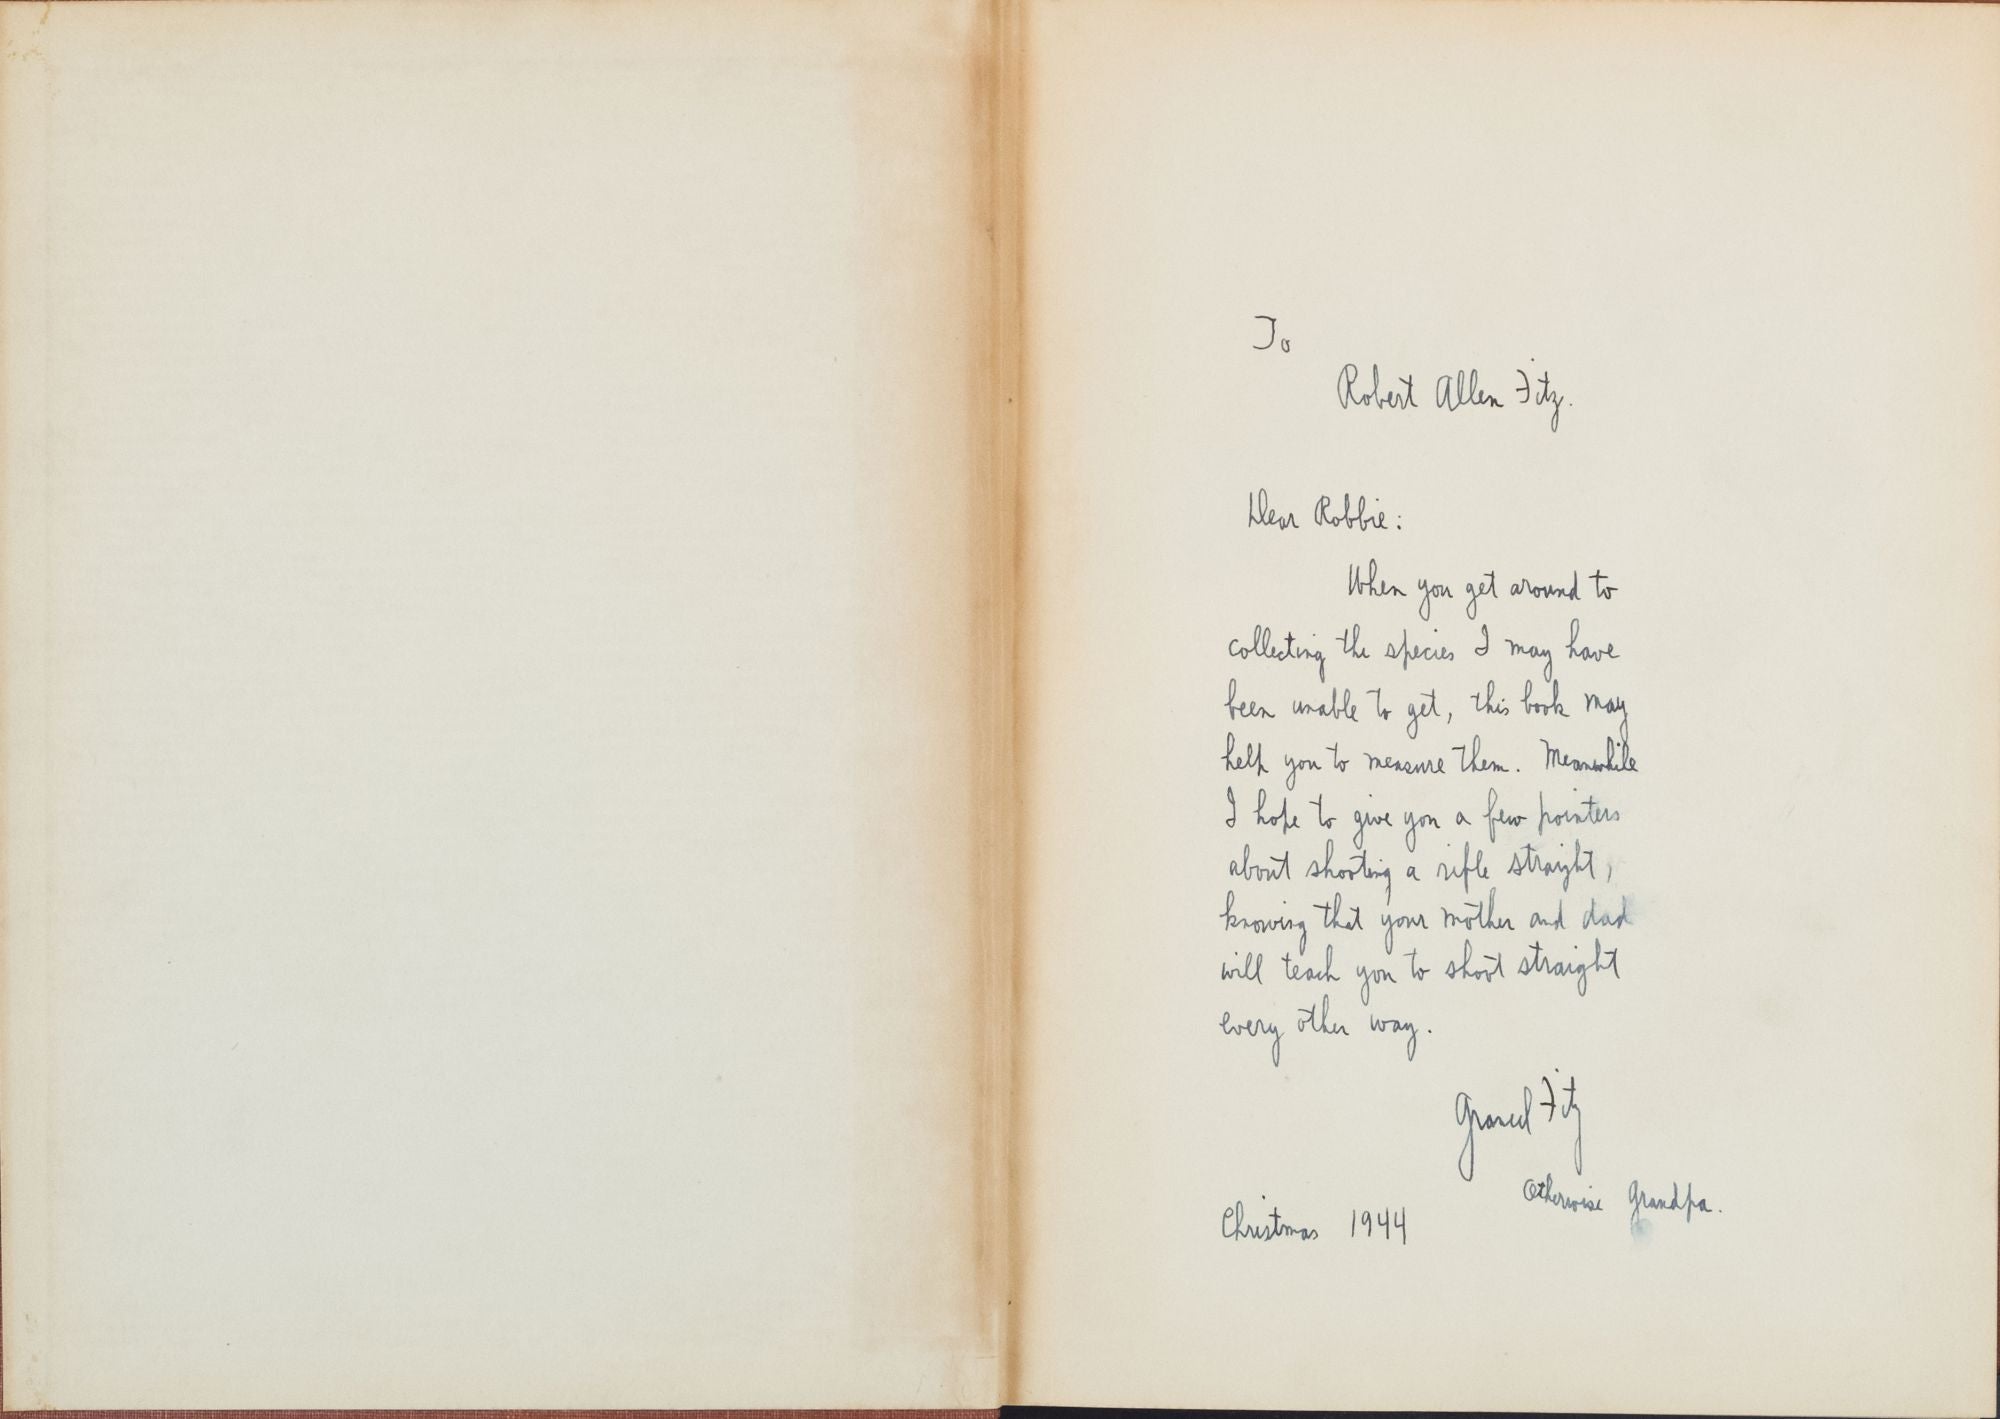 To
Robert Allen Fitz.
Dear Robbie:
When you get around to
collecting the species I may have
been unable to get, this book may
help you to measure them. Meanwhile
I hope to give you a few pointers
about shooting a rifle straight,
knowing that your mother and dad
will teach you to shoot straight
every other way.
Grancel Fitz
Otherwise Grandpa.
Christmas 1944